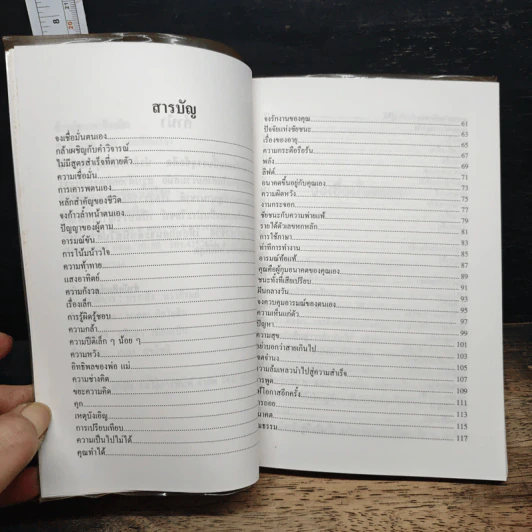 สารบัญ
จงเชื่อมั่นตนเอง
กล้าเผชิญกับคำวิจารณ์
ไม่มีสูตรสำเร็จที่ตายตัว
ความเชื่อมั่น
การเคารพตนเอง
หลักสำคัญของชีวิต
จงก้าวล้ำหน้าตนเอง
ปัญญาของผู้ตาม
อารมณ์ขัน
การโน้มน้าวใจ
ความท้าทาย
แสงอาทิตย์
ความกังวล
เรื่องเล็ก
การรู้ผิดรู้ชอบ
ความกล้า
ความปีติเล็ก ๆ น้อย ๆ
ความหวัง
อิทธิพลของพ่อ แม่
ความช่างคิด
ขยะความคิด
คุก
เหตุบังเอิญ
การเปรียบเทียบ
ความเป็นไปไม่ได้
คุณทำได้
จงรักงานของคุณ 61
ปัจจัยแห่งชัยชนะ 63
เรื่องของอายุ 65
ความกระตือรือร้น 67
พลัง 69
ลิฟต์ 71
อนาคตขึ้นอยู่กับคุณเอง 73
ความผิดหวัง 75
งานกระจอก 77
ชัยชนะกับความพ่ายแพ้ 79
รายได้ตัวเลขหกหลัก 81
การใช้ภาษา 83
ท่าทีการทำงาน 85
อารมณ์ท้อแท้ 87
คุณคือผู้กุมอนาคตของคุณเอง 89
ชนะทั้งที่เสียเปรียบ 91
ฝันกลางวัน 93
จงควบคุมอารมณ์ของตนเอง 95
ความเห็นแก่ตัว 97
ปัญหา 99
ความสุข 101
อย่าบอกว่าสายเกินไป 103
105
ความล้มเหลวนำไปสู่ความสำเร็จ 107
การพูด 109
ให้โอกาสอีกครั้ง 111
113
115
117